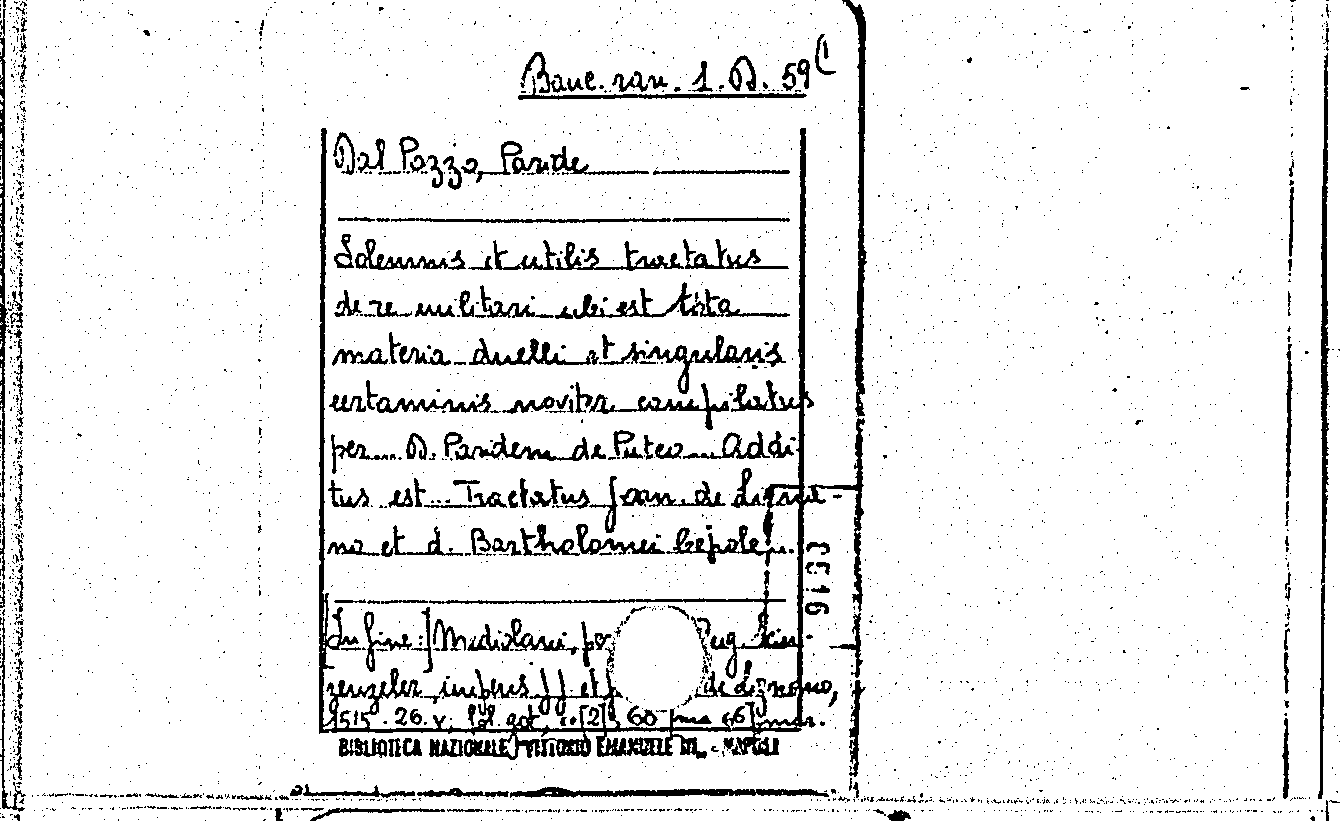 Banc. rar. 1. D. 59(1
Dal Pozzo, Paride
Solemnis et utilis tractatus
de re militari ubi est tota
materia duelli et singularis
certaminis noviter compilatus
per... D. Paridem de Puteo... Addi-
tus est... Tractatus Joan. de Lignia-
no et d. Bartholomei Cepole...
3516
[In fine:] Mediolani, per Aug. Scin-
zenzeler, impensis JJ et de Legnano,
1515. 26. v; fol. got, cc [2], 60 [ma 66] mar.
BIBLIOTECA NAZIONALE VITTORIO EMANUELE III - NAPOLI